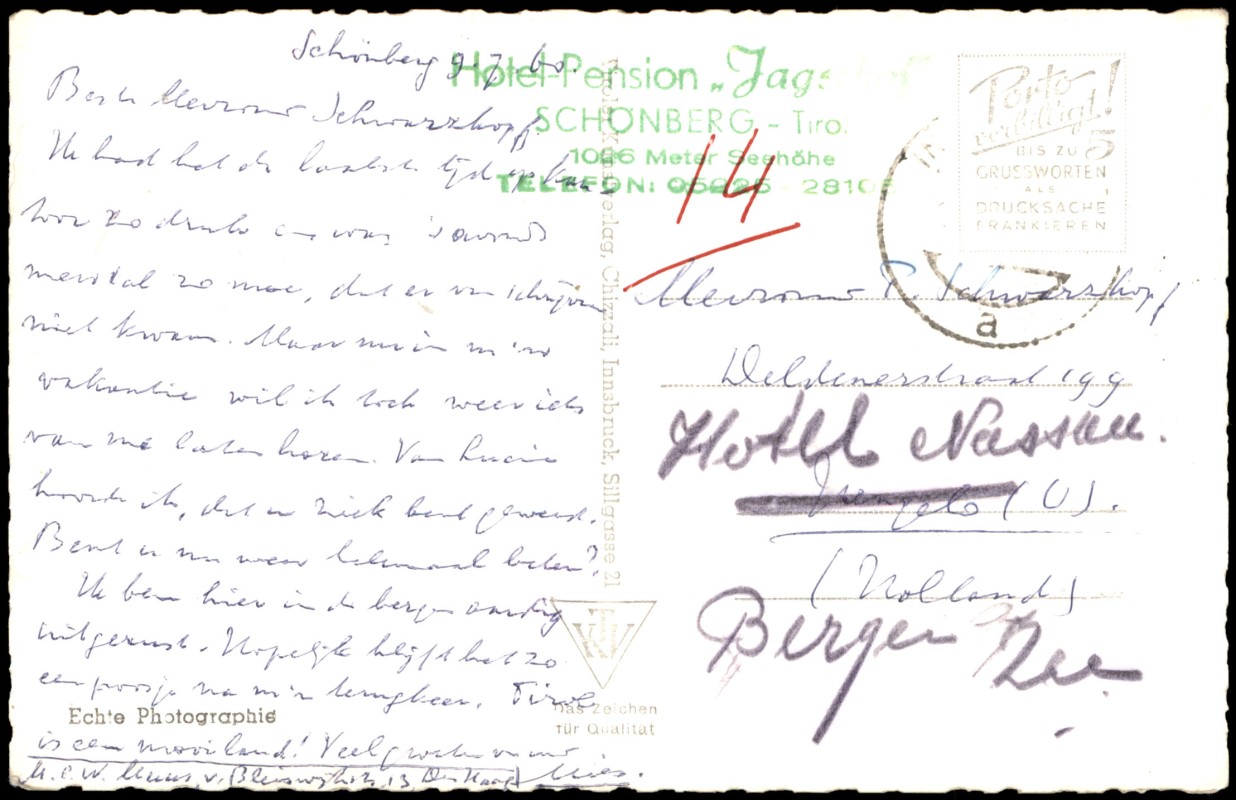 Schönberg 9-7-60.
Beste Mevrouw Schwarzkopf
Ik had het de laatste tijd op kan-
toor zo druk en was 's avonds
meestal zo moe, dat er van schrijven
niet kwam. Maar nu in m'n
vakantie wil ik toch weer iets
van me laten horen. Van Lucie
hoorde ik, dat u ziek bent geweest.
Bent u nu weer helemaal beter?
Ik ben hier in de bergen aardig
uitgerust. Hopelijk blijft het zo
een poosje na m'n terugkeer. Tirol
is een mooi land! Veel groeten van
Mies.
M.C.W. v. 13, Den Haag
Hotel-Pension „Jags
SCHÖNBERG - Tiro.
1026 Meter Seehöhe
TELEFON: 05225 - 2810
14
Porto
verbilligt!
BIS ZU 5
GRUSSWORTEN
ALS
DRUCKSACHE
FRANKIEREN
a
Mevrouw P. Schwarzkopf
Deldenerstraat 199
Hotel Nassau.
Hengelo (O).
(Holland)
Bergen
Zee.
Verlag, Chizzali, Innsbruck, Sillgasse 21
Das Zeichen
für Qualität
Echte Photographie